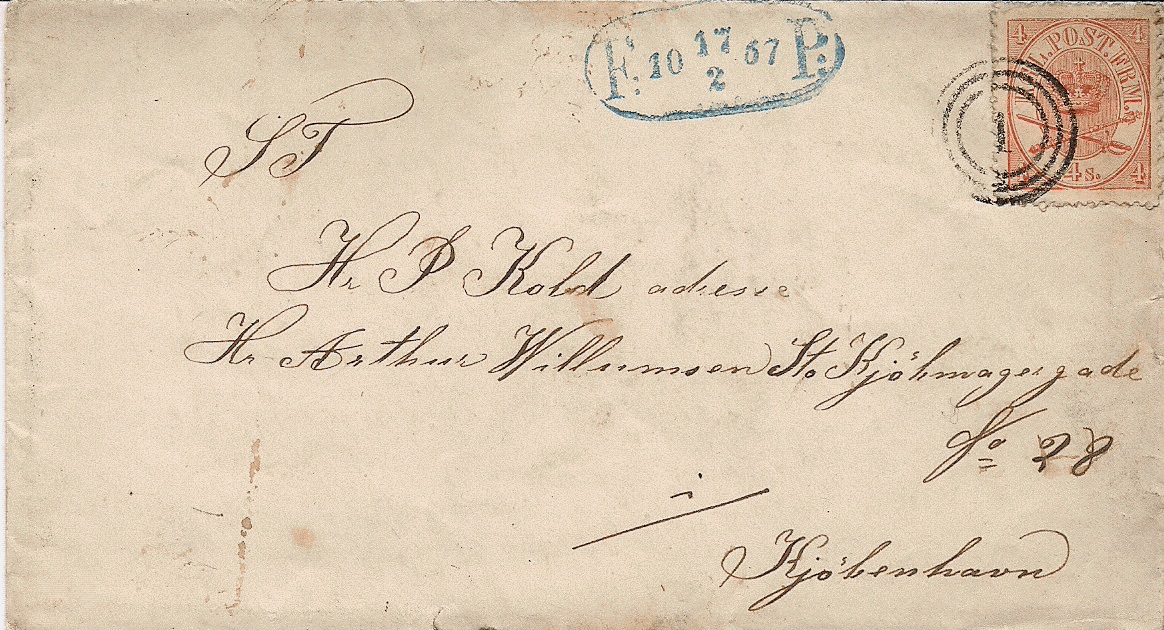 F: 10 17/2 67 P:
4 4
KGL. POST FRM.
1
4 4s. 4
S T
Hr P Kold adresse
Hr Arthur Willumsen St. Kjöbmagergade
No 28
i
Kjöbenhavn